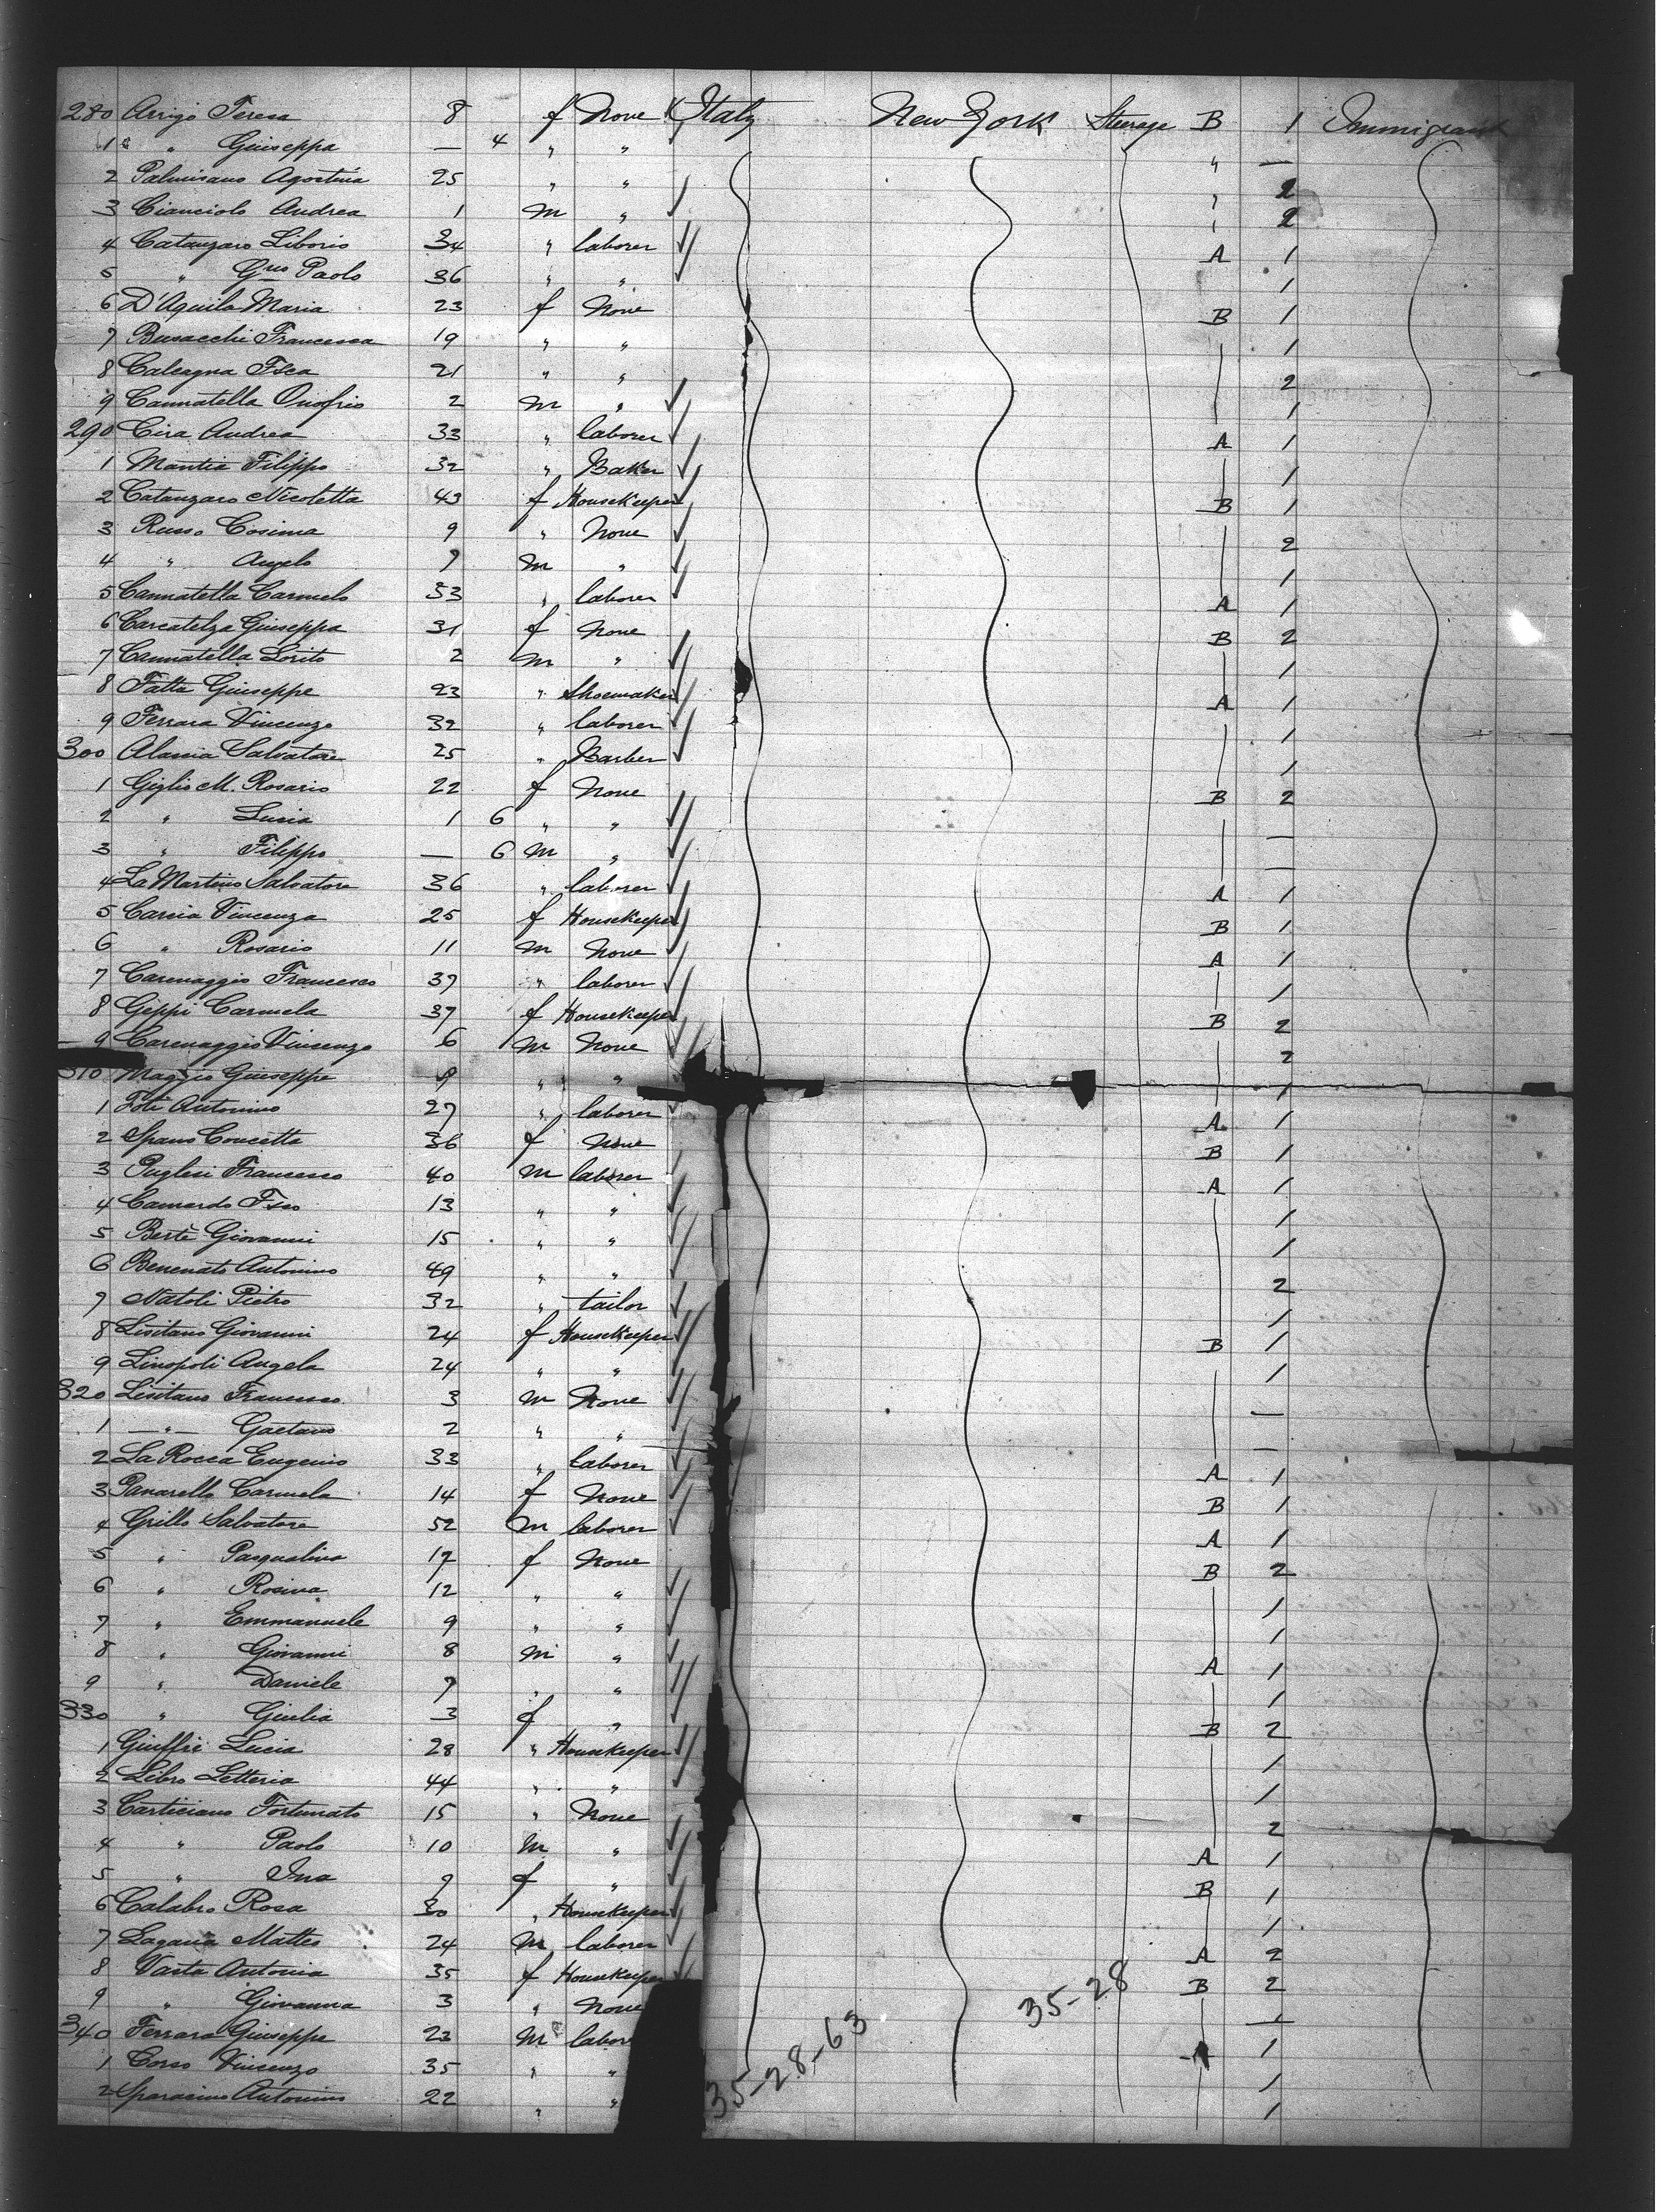 280 Arrigo Teresa 8 f None Italy New York Steerage B 1 Immigrant
1 " Giuseppa — 4 " " " —
2 Palmisano Agostina 25 " " " 2
3 Cianciolo Andrea 1 m " " 2
4 Catanzaro Liborio 34 " laborer A 1
5 " Gius Paolo 36 " " 1
6 D'Aquila Maria 23 f None B 1
7 Busacchi Francesca 19 " " 1
8 Calcagna Fsca 21 " " 2
9 Cannatella Onofrio 2 m " 1
290 Cira Andrea 33 " laborer A 1
1 Mantia Filippo 32 " Baker 1
2 Catanzaro Nicoletta 43 f Housekeeper B 1
3 Russo Cosima 9 " None 2
4 " Angelo 7 m " 1
5 Cannatella Carmelo 33 " laborer A 1
6 Giuseppa 31 f None B 2
7 Cannatella Lorito 2 m " 1
8 Fatta Giuseppe 23 " Shoemaker A 1
9 Ferrara Vincenzo 32 " laborer 1
300 Alania Salvatore 25 " Barber 1
1 Giglio M. Rosario 22 f None B 2
2 " Lucia 1 6 " " —
3 " Filippo — 6 m " —
4 La Martino Salvatore 36 " laborer A 1
5 Carcia Vincenza 25 f Housekeeper B 1
6 " Rosario 11 m None A 1
7 Carenaggio Francesco 37 " laborer 1
8 Geppi Carmela 37 f Housekeeper B 2
9 Carenaggio Vincenzo 6 m None 2
310 Maggio Giuseppe 9 " " 1
1 Foti Antonino 27 " laborer A 1
2 Spano Concetta 36 f None B 1
3 Puglisi Francesco 40 m laborer A 1
4 Camardo Fsco 13 " " 1
5 Bertè Giovanni 15 " " 1
6 Benenato Antonino 49 " " 2
7 Natoli Pietro 32 " tailor 1
8 Lisitano Giovanni 24 f Housekeeper B 1
9 Linopoli Angela 24 " " 1
320 Lisitano Francesco 3 m None —
1 — " — Gaetano 2 " " —
2 La Rocca Eugenio 33 " laborer A 1
3 Panarello Carmela 14 f None B 1
4 Grillo Salvatore 52 m laborer A 1
5 " Pasqualina 17 f None B 2
6 " Rosina 12 " " 1
7 " Emmanuele 9 " " 1
8 " Giovanni 8 m " A 1
9 " Daniele 7 " " 1
330 " Giulia 3 f " B 2
1 Giuffrè Lucia 28 " Housekeeper 1
2 Libro Letteria 44 " " 1
3 Carticiano Fortunato 15 " None 2
4 " Paolo 10 m " A 1
5 " Ina 9 f " B 1
6 Calabro Rosa 30 " Housekeeper 1
7 Lagana Matteo 24 m laborer A 2
8 Vasta Antonia 35 f Housekeeper B 2
9 " Giovanna 3 " None —
340 Ferrara Giuseppe 23 m labore A 1
1 Corso Vincenzo 35 " " 1
2 Sparacino Antonino 22 " " 1
35-28-63
35-28